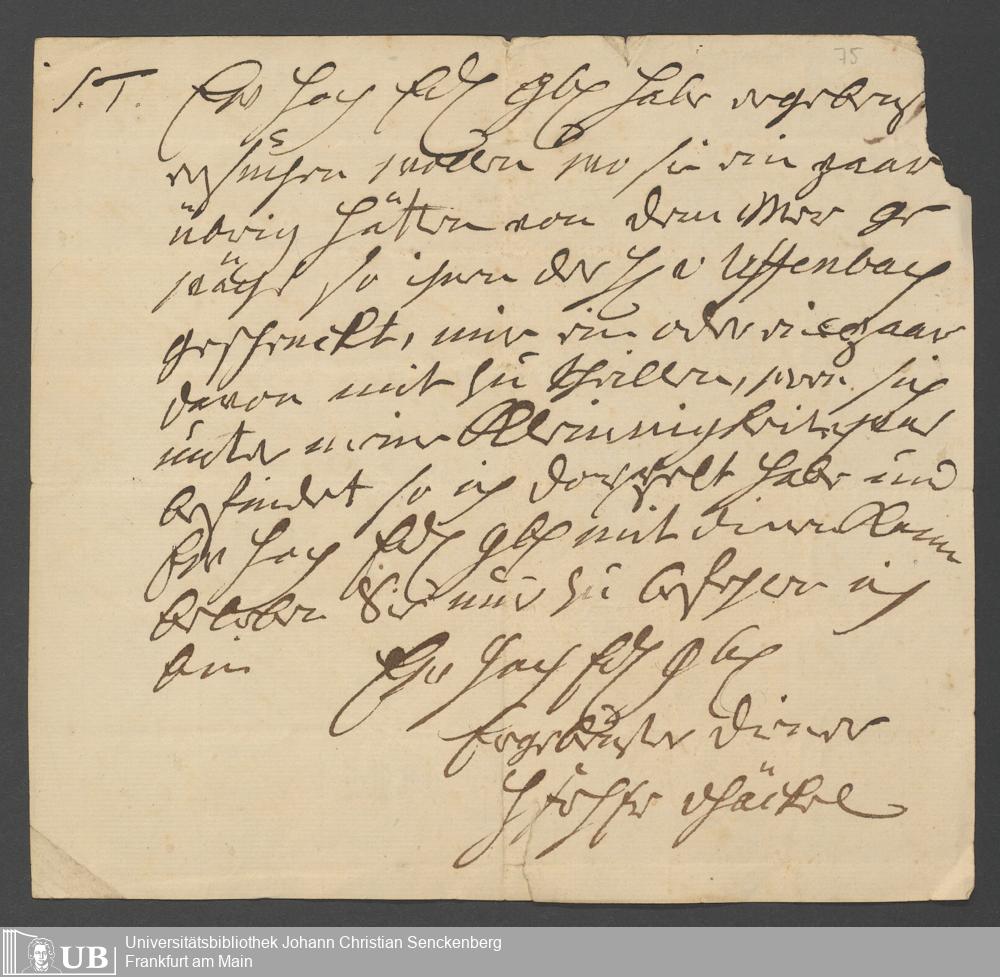 75
S. T. Ew Hoch Edl gb habe ergebenst
ersuchen wollen wo sie ein paar
übrig hätten von dem Mer ge
wächs so ihnen der H v Uffenbach
geschenckt, mir ein oder ein paar
davon mit zu theillen, wen sich
unter meine Kleinnigkeit etwas
befindet so ich doppelt habe und
Ew Hoch Edl gb mit dienen kann
belieben Sie nur zu befehlen ich
bin Ew Hoch Edl gb
Ergebenster Diener
Häckel
Universitätsbibliothek Johann Christian Senckenberg
Frankfurt am Main
UB